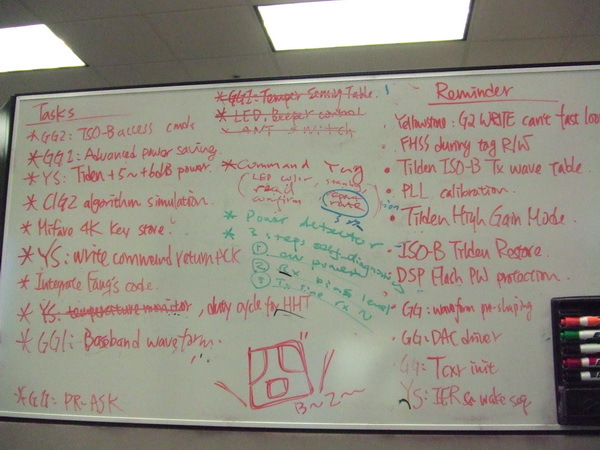 Tasks
* GG2: ISO-B access cmds
* GG1: Advanced power saving
* YS: Tiden +5~+6dB power.
* C1G2 algorithm simulation.
* Mifare 4K Key store.
* YS: Write command return ACK
* Integrate Fang's code.
* YS: temperature monitor, duty cycle for HHT
* GG1: Baseband waveform.
* GG: PR-ASK
* GG2: Temper Sensing Table.
* LED, Beeper control
* ANT switch
* Command Ying
LED color
confirm
* Power detector
* 3 steps self diagnosing
① low power
② Rx bias level
③ Tx side rx ~
B~Z~
Reminder
Yellowstone: G2 WRITE can't fast
FHSS during tag R/W
Tilden ISO-B Tx wave Table.
• PLL calibration.
• Tilden High Gain Mode.
• ISO-B Tilden Restore.
DSP Flash PW protection.
• GG: waveform pre-shaping
• GG: DAC driver
GG: Tcxo init
YS: IER & wake seq.